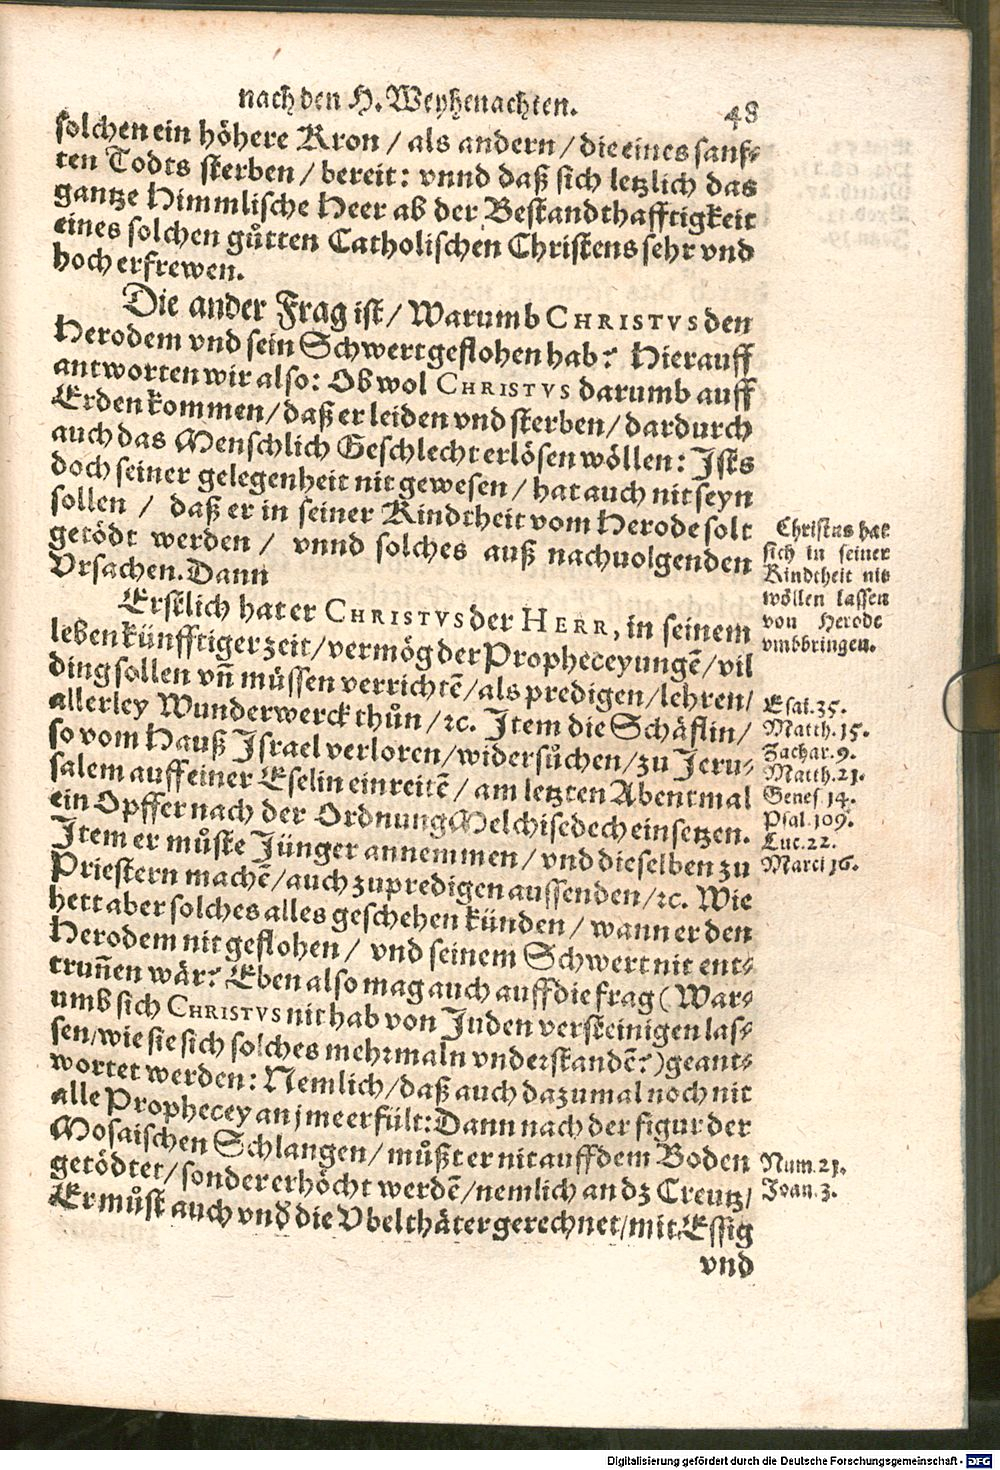 nach den H. Weyhenachten. 48
solchen ein höhere Kron / als andern / die eines sanf-
ten Todts sterben / bereit: vnnd daß sich letzlich das
gantze Himmlische Heer ab der Bestandthafftigkeit
eines solchen gůtten Catholischen Christens sehr vnd
hoch erfrewen.
Die ander Frag ist / Warumb CHRISTVS den
Herodem vnd sein Schwert geflohen hab? Hierauff
antworten wir also: Ob wol CHRISTVS darumb auff
Erden kommen / daß er leiden vnd sterben / dardurch
auch das Menschlich Geschlecht erlösen wöllen: Ists
doch seiner gelegenheit nit gewesen / hat auch nit seyn
sollen / daß er in seiner Kindtheit vom Herode solt
getödt werden / vnnd solches auß nachuolgenden
Vrsachen. Dann
Erstlich hat er CHRISTVS der HERR, in seinem
leben künfftiger zeit / vermög der Propheceyungẽ / vil
ding sollen vñ müssen verrichtẽ / als predigen / lehren /
allerley Wunderwerck thůn / ꝛc. Item die Schäflin /
so vom Hauß Israel verloren / widersůchen / zu Jeru-
salem auff einer Eselin einreitẽ / am letzten Abentmal
ein Opffer nach der Ordnung Melchisedech einsetzen.
Item er můste Jünger annemmen / vnd dieselben zu
Priestern machẽ / auch zu predigen aussenden / ꝛc. Wie
hett aber solches alles geschehen künden / wann er den
Herodem nit geflohen / vnd seinem Schwert nit ent-
truñen wär? Eben also mag auch auff die frag (War-
umb sich CHRISTVS nit hab von Juden versteinigen las-
sen / wie sie sich solches mehrmaln vnderstandẽ?) geant-
wortet werden: Nemlich / daß auch dazumal noch nit
alle Prophecey an jme erfült: Dann nach der figur der
Mosaischen Schlangen / můßt er nit auff dem Boden
getödtet / sonder erhöcht werdẽ / nemlich an dz Creutz /
Er můst auch vnd die Vbelthäter gerechnet / mit Essig
vnd
Christus hat
sich in seiner
Kindtheit nit
wöllen lassen
von Herode
vmbbringen.
Esai. 35.
Matth. 15.
Zachar. 9.
Matth. 21.
Genes 14.
Psal. 109.
Luc. 22.
Marci 16.
Num. 21.
Joan. 3.
Digitalisierung gefördert durch die Deutsche Forschungsgemeinschaft - DFG